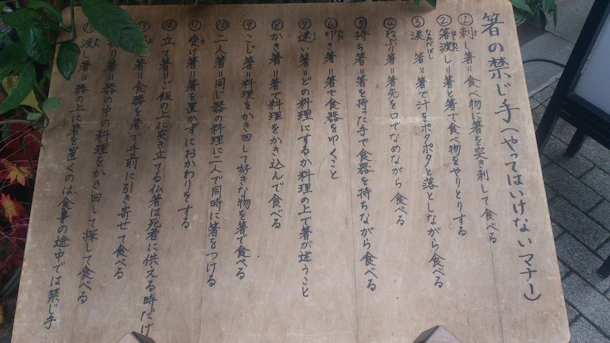 箸の禁じ手(やってはいけないマナー)
①刺し箸=食べ物に箸を突き刺して食べる
②箸渡し=箸と箸で食べ物をやりとりする
③涙箸=箸先から汁をポタポタと落としながら食べる
④ねぶり箸=箸先を口でなめながら食べる
⑤持ち箸=箸を持た手で食器を持ちながら食べる
⑥叩き箸=箸で食器を叩くこと
⑦迷い箸=どの料理にするか料理の上で箸が迷うこと
⑧かき箸=箸で料理をかき込んで食べる
⑨こじ箸=料理をかき回して好きな物を箸で食べる
⑩二人箸=同じ器の料理に二人で同時に箸をつける
⑪受け箸=箸を置かずにおかわりをする
⑫立て箸=飯の上に突き立てる仏箸は死者に供える時だけ
箸=食器を箸で手前に引き寄せて食べる
り箸=器の中の料理をかき回して探して食べる
渡し箸=器の上に箸を置くのは食事の途中では禁じ手